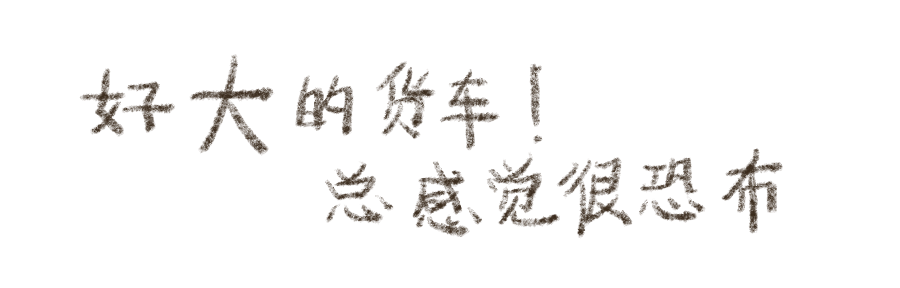 好大的货车！
总感觉很恐布